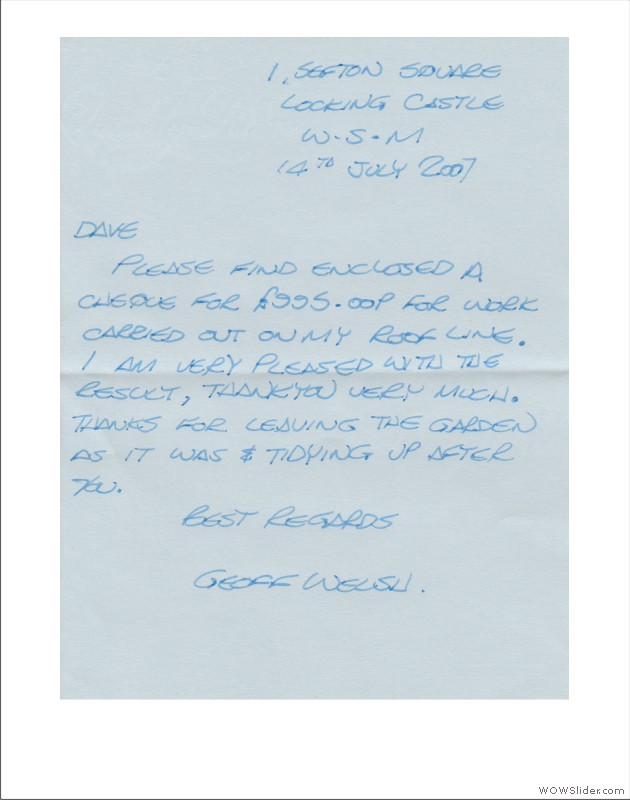 1, SEFTON SQUARE
LOCKING CASTLE
W-S-M
14TH JULY 2007
DAVE
PLEASE FIND ENCLOSED A
CHEQUE FOR £995.00P FOR WORK
CARRIED OUT ON MY ROOF LINE.
I AM VERY PLEASED WITH THE
RESULT, THANKYOU VERY MUCH.
THANKS FOR LEAVING THE GARDEN
AS IT WAS & TIDYING UP AFTER
YOU.
BEST REGARDS
GEOFF WELSH.
WOWSlider.com